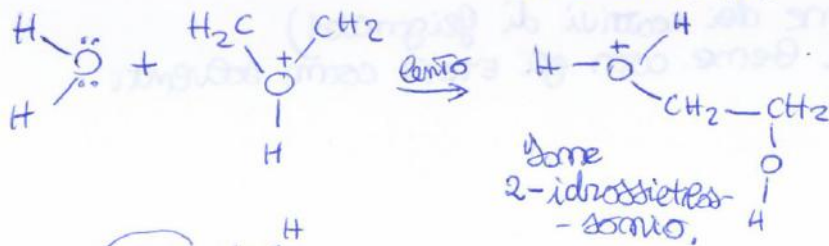 H
H₂C CH₂
H
Ö + O⁺ lento → H—O⁺
H
H
CH₂—CH₂
O
H
Ione
2-idrossietilos-
-sonio.
H